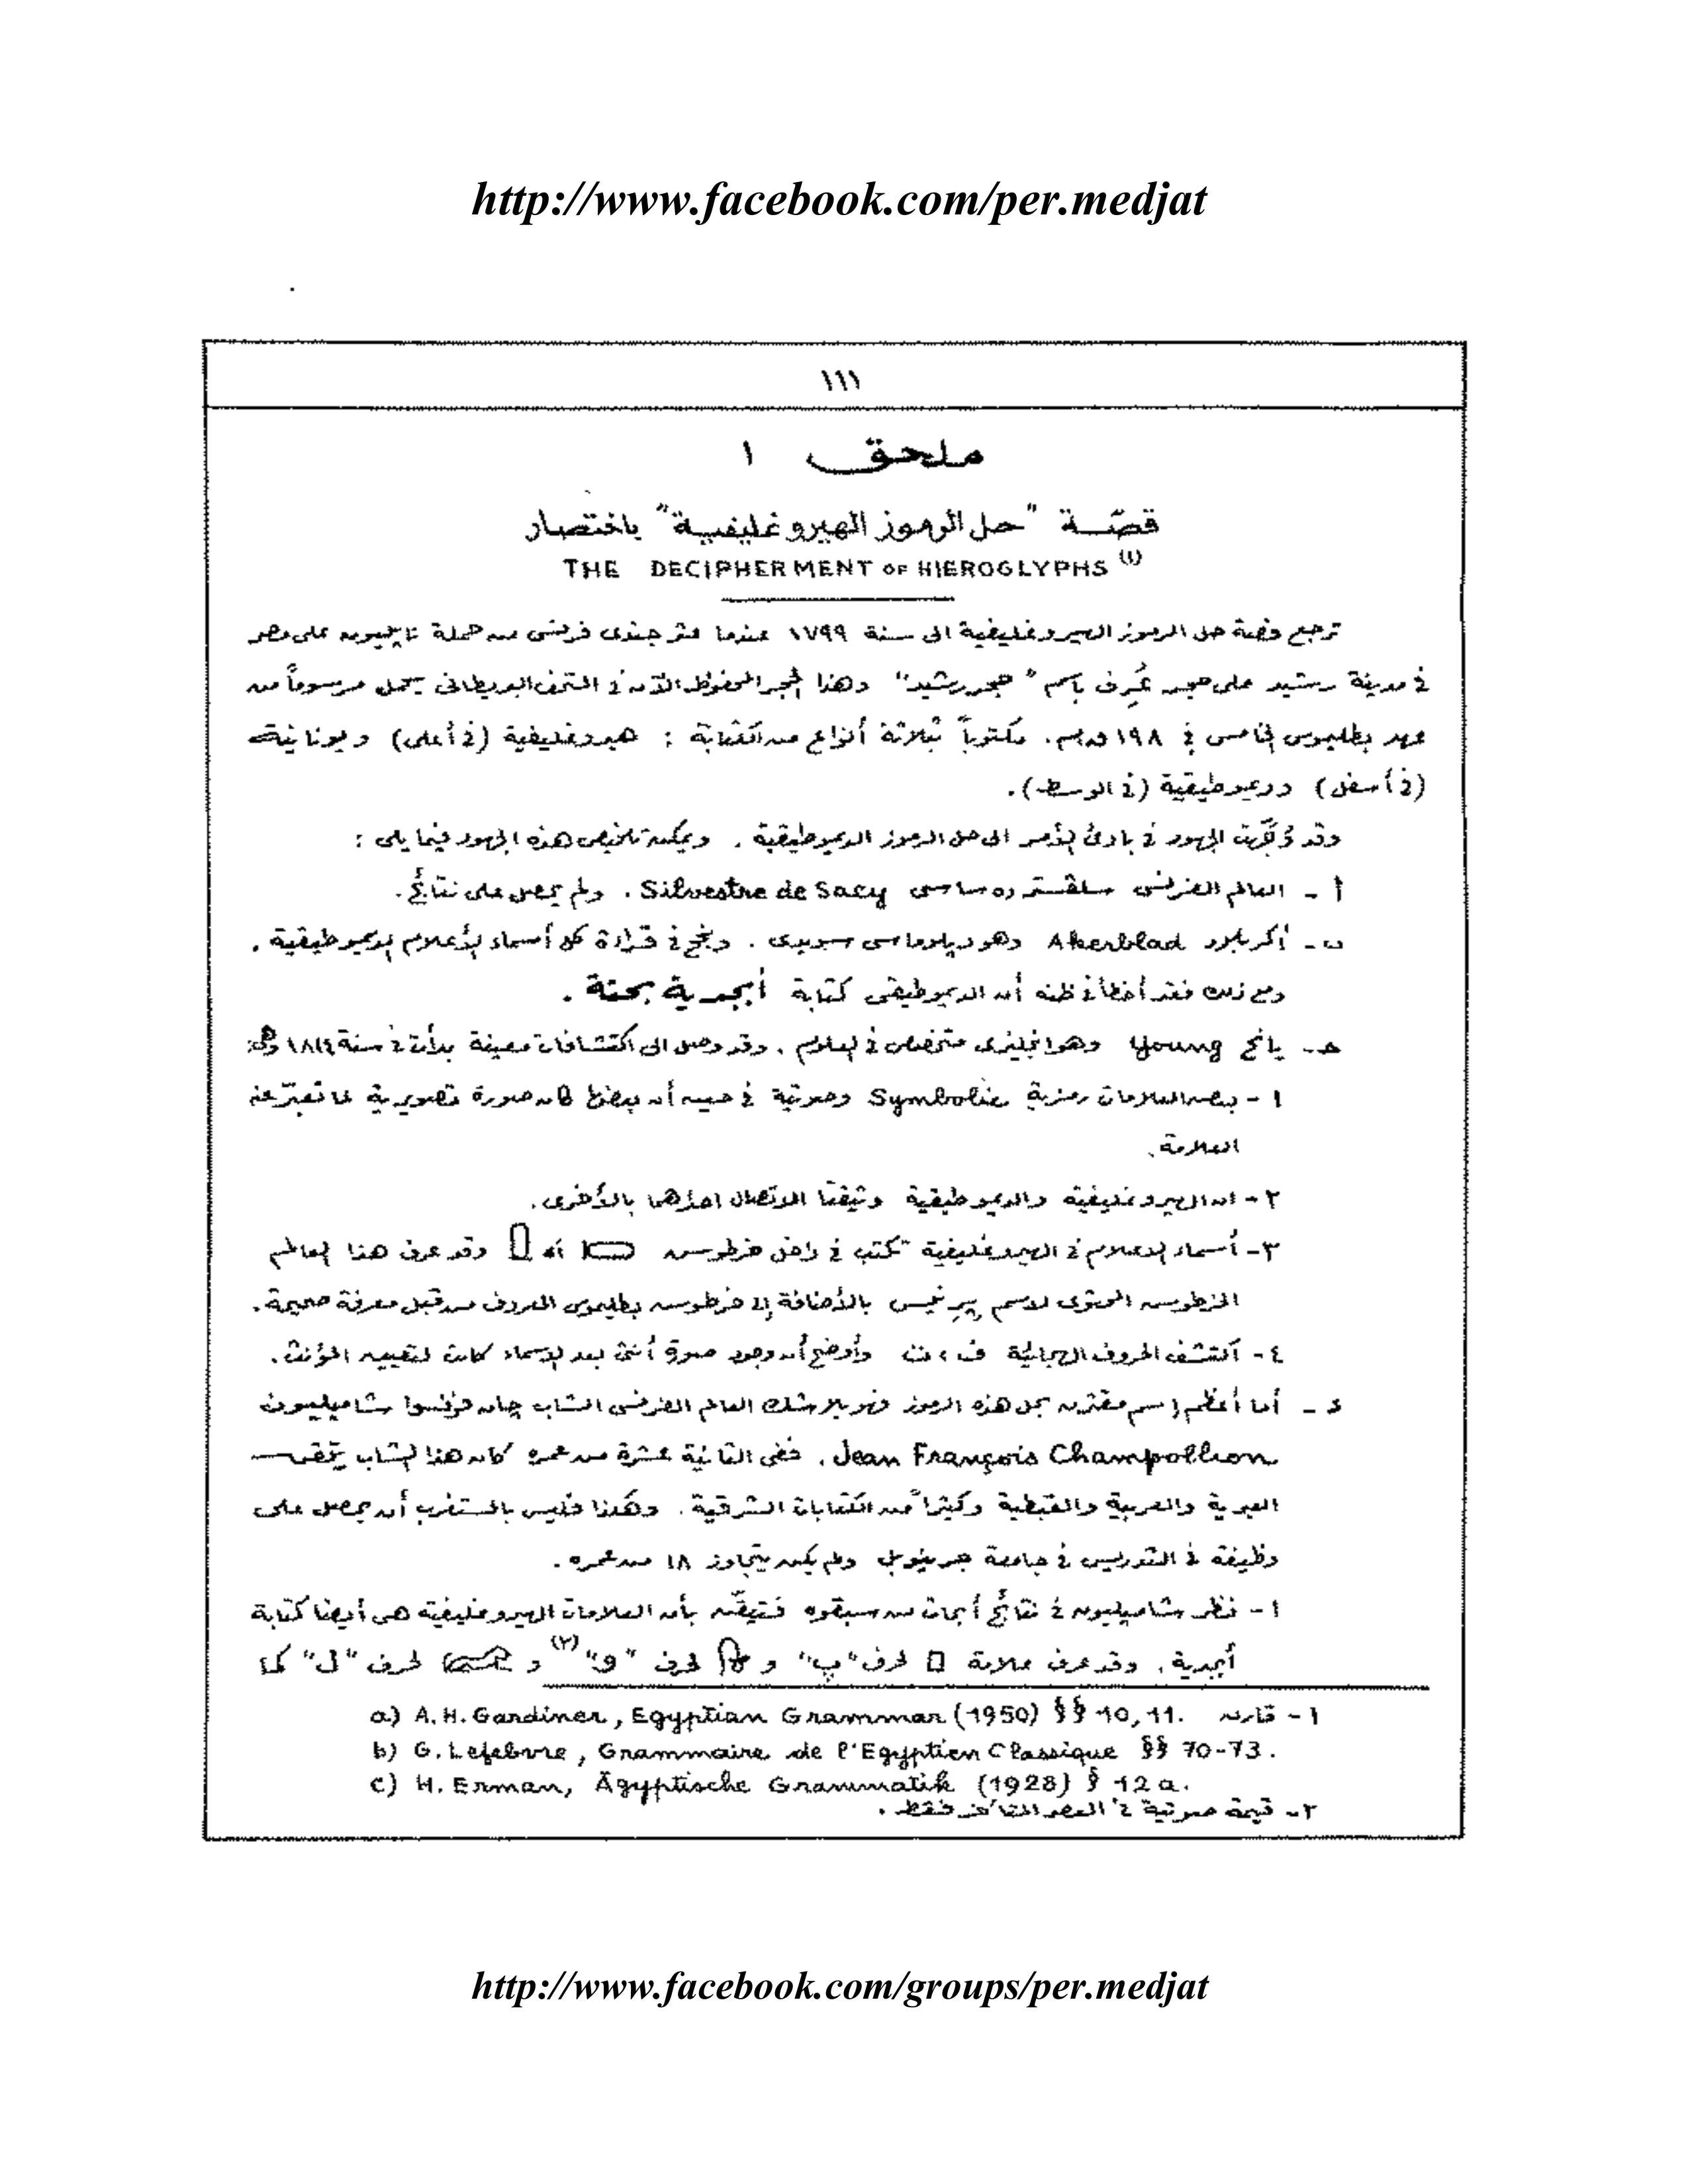 http://www.facebook.com/per.medjat
١١١
ملحق ١
قصّة "حل الرموز الهيروغليفية" باختصار
THE DECIPHERMENT OF HIEROGLYPHS (١)
ترجع قصة حل الرموز الهيروغليفية الى سنة ١٧٩٩ عندما عثر جندى فرنسى من حملة نابليون على مصر
فى مدينة رشيد على حجر عُرف باسم "حجر رشيد" وهذا الحجر المحفوظ الآن فى المتحف البريطانى يحمل مرسوماً من
عهد بطليموس الخامس فى ١٩٨ ق.م. مكتوباً بثلاثة أنواع من الكتابة : هيروغليفية (فى أعلى) ويونانية
(فى أسفل) وديموطيقية (فى الوسط).
وقد وُجّهت الجهود فى بادئ الأمر الى حل الرموز الديموطيقية . ويمكن تلخيص هذه الجهود فيما يلى :
أ - العالم الفرنسى سلفستر ده ساسى Silvestre de Sacy . ولم يحصل على نتائج.
ب - أكربلاد Akerblad وهو ديبلوماسى سويدى . ونجح فى قراءة كل أسماء الأعلام الديموطيقية .
ومع ذلك فقد أخطأ فى ظنه أن الديموطيقى كتابة أبجدية بحتة .
حـ - يانج Young وهو انجليزى متخصص فى العلوم . وقد وصل الى اكتشافات معينة بدأت فى سنة ١٨١٤ وهى:
١ - بعض العلامات رمزية Symbolic وصوتية فى حين أن بعضها كان صورة تصويرية لما تعبّر عنه
العلامة.
٢ - ان الهيروغليفية والديموطيقية وثيقتا الاتصال احداهما بالأخرى.
٣ - أسماء الاعلام فى الهيروغليفية تكتب فى داخل خرطوش أو وقد عرف هذا العالم
الخرطوش المحتوى لاسم بيرنيس بالأضافة إلى خرطوش بطليموس المعروف من قبل معرفة صحيحة.
٤ - اكتشف الحروف الهجائية ف ، ت وأوضح أن وجود صورة أنثى بعد الاسماء كانت لتعيين المؤنث.
د - أما أعظم إسم مقترن بحل هذه الرموز فهو بلا شك العالم الفرنسى الشاب جان فرنسوا شامبليون
Jean François Champollion . ففى الثانية عشرة من عمره كان هذا الشاب يتقن
العبرية والعربية والقبطية وكثيراً من الكتابات الشرقية. وهكذا فليس بالمستغرب أن يحصل على
وظيفة فى التدريس فى جامعة جرينوبل ولم يكن يتجاوز ١٨ من عمره .
١ - نظر شامبليون فى نتائج أبحاث من سبقوه فتيقّن بأن العلامات الهيروغليفية هى أيضا كتابة
أبجدية. وقد عرف علامة لحرف "پ" و لحرف "و" (٢) و لحرف "ل" كما
١ - قارن a) A.H. Gardiner, Egyptian Grammar (1950) §§ 10, 11.
b) G. Lefebvre, Grammaire de l'Egyptien Classique §§ 70-73.
c) H. Erman, Ägyptische Grammatik (1928) § 12 a.
٢ - قيمة صوتية فى العصر المتأخر فقط .
http://www.facebook.com/groups/per.medjat